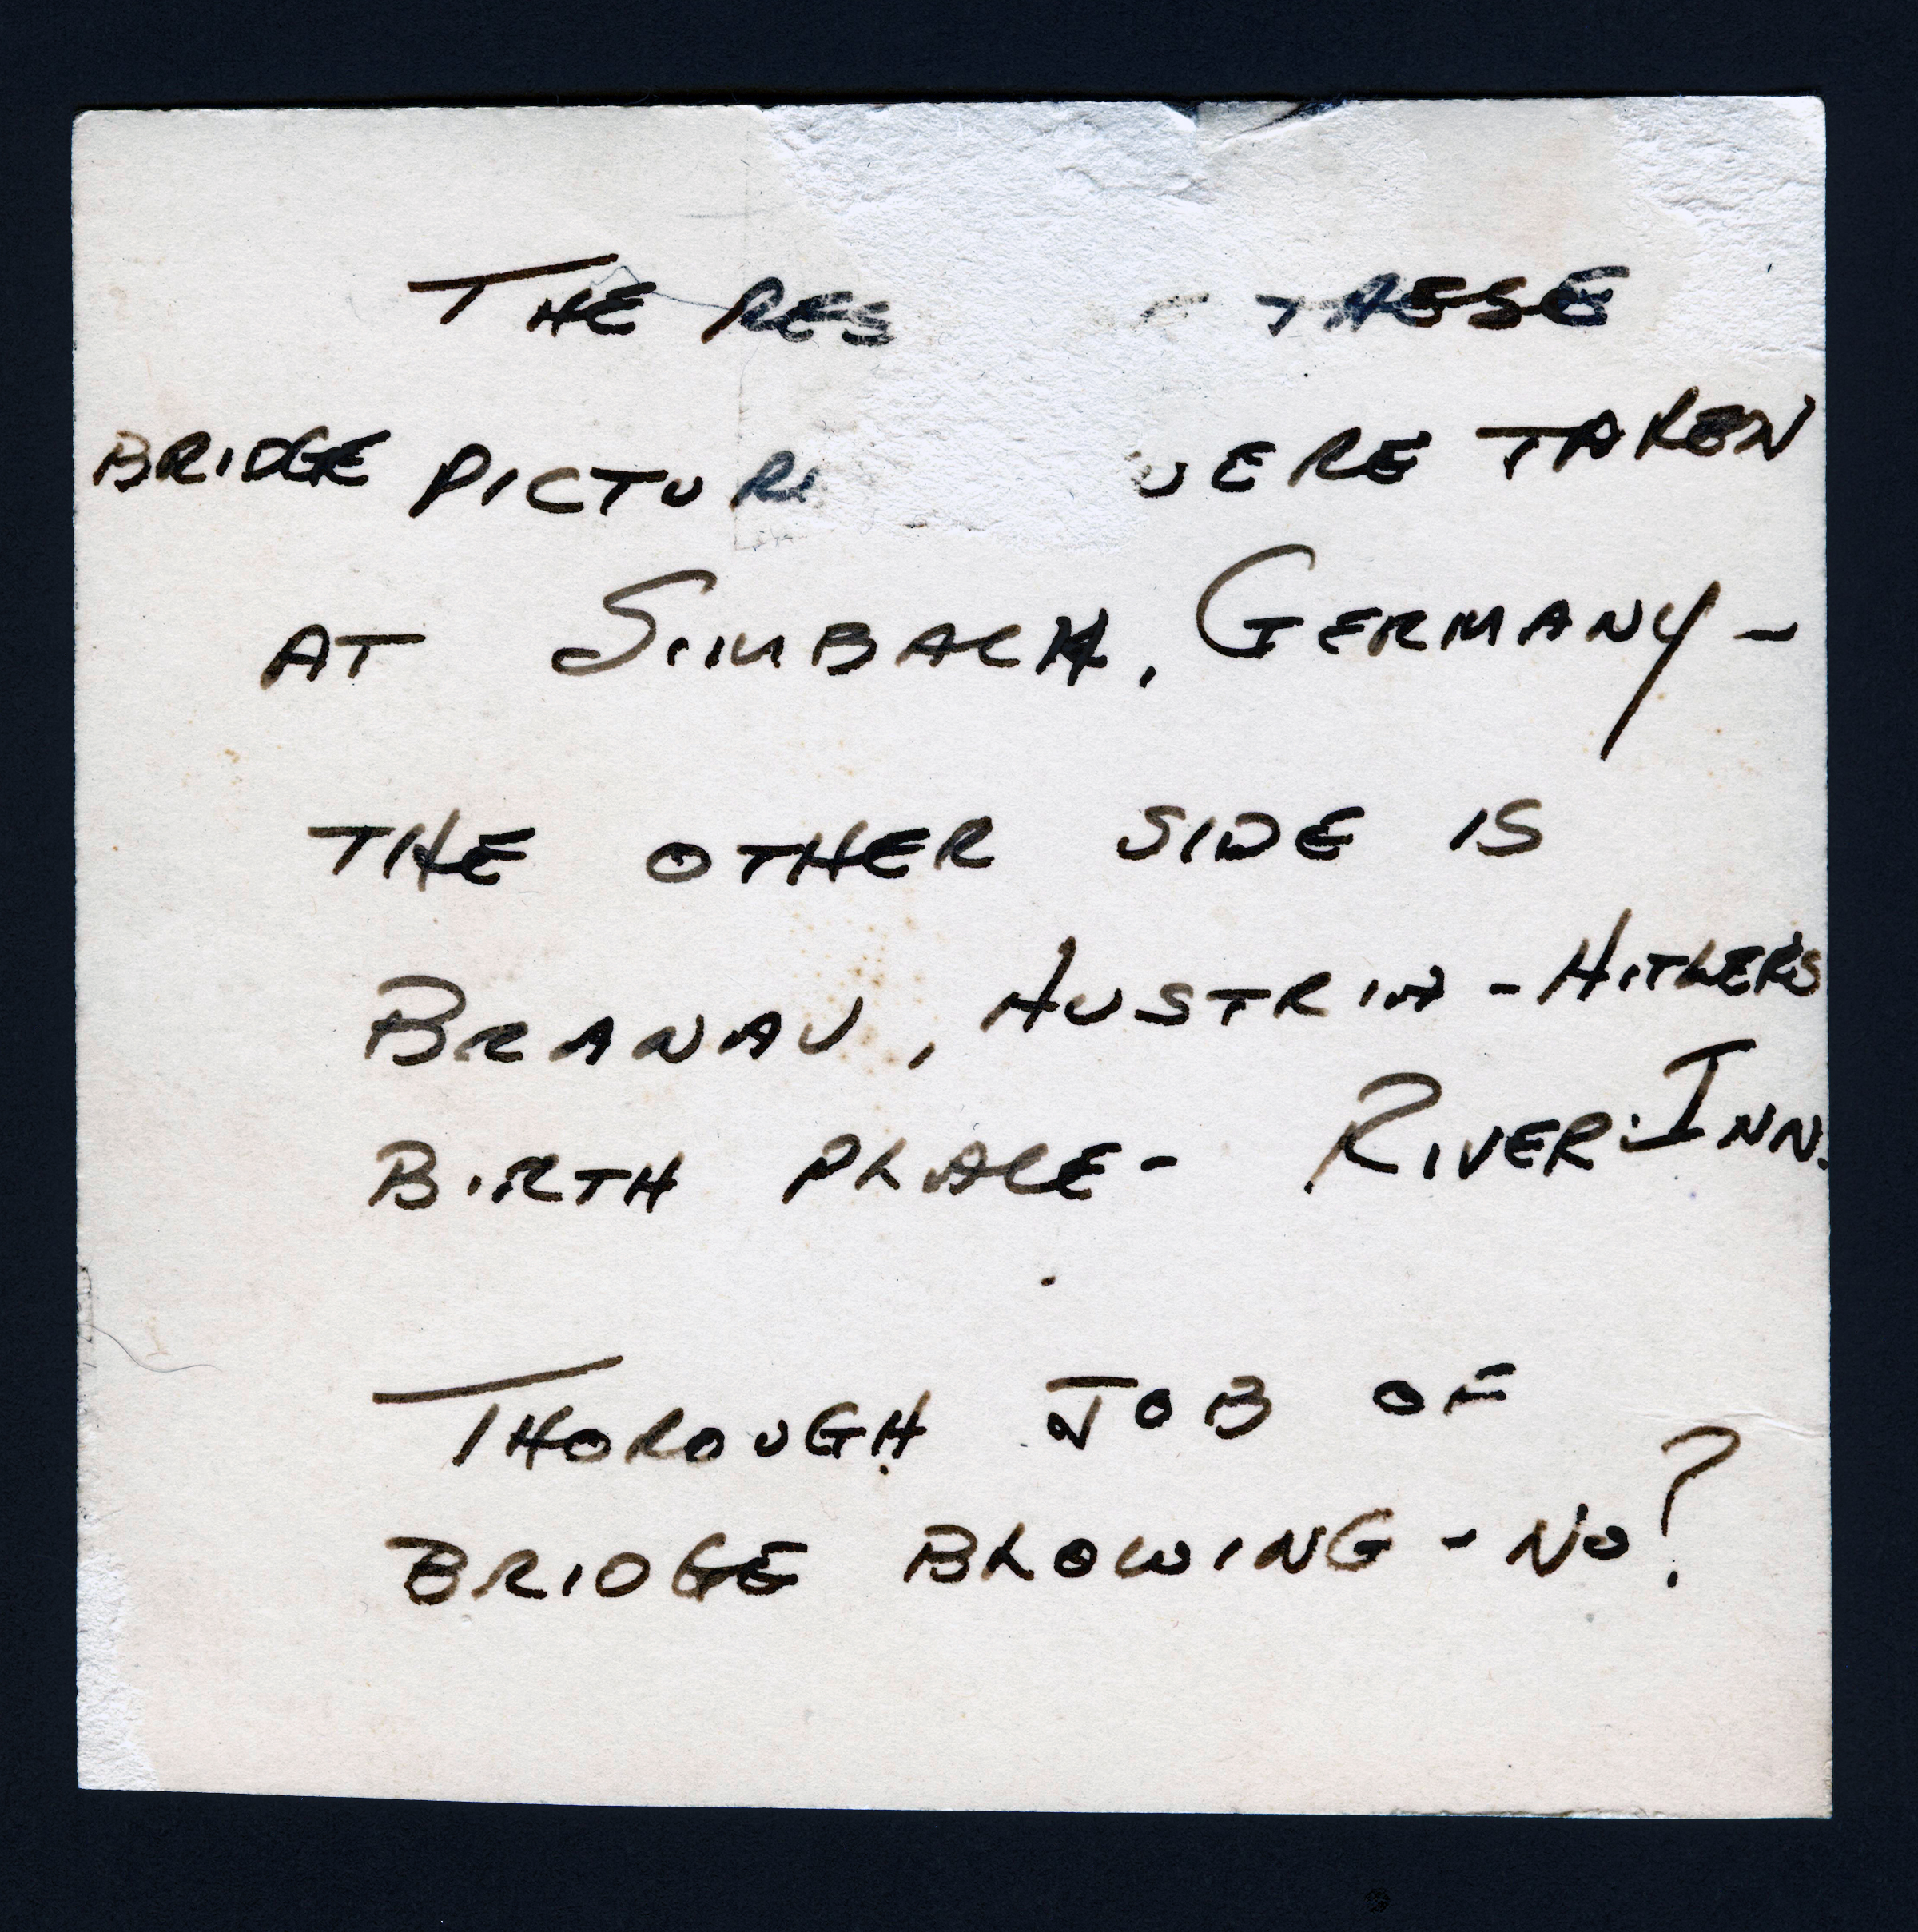 THE RES THESE
BRIDGE PICTUR WERE TAKEN
AT SIMBACH, GERMANY -
THE OTHER SIDE IS
BRANAU, AUSTRIA - HITLERS
BIRTH PLACE - RIVER: INN.
THOROUGH JOB OF
BRIDGE BLOWING - NO?